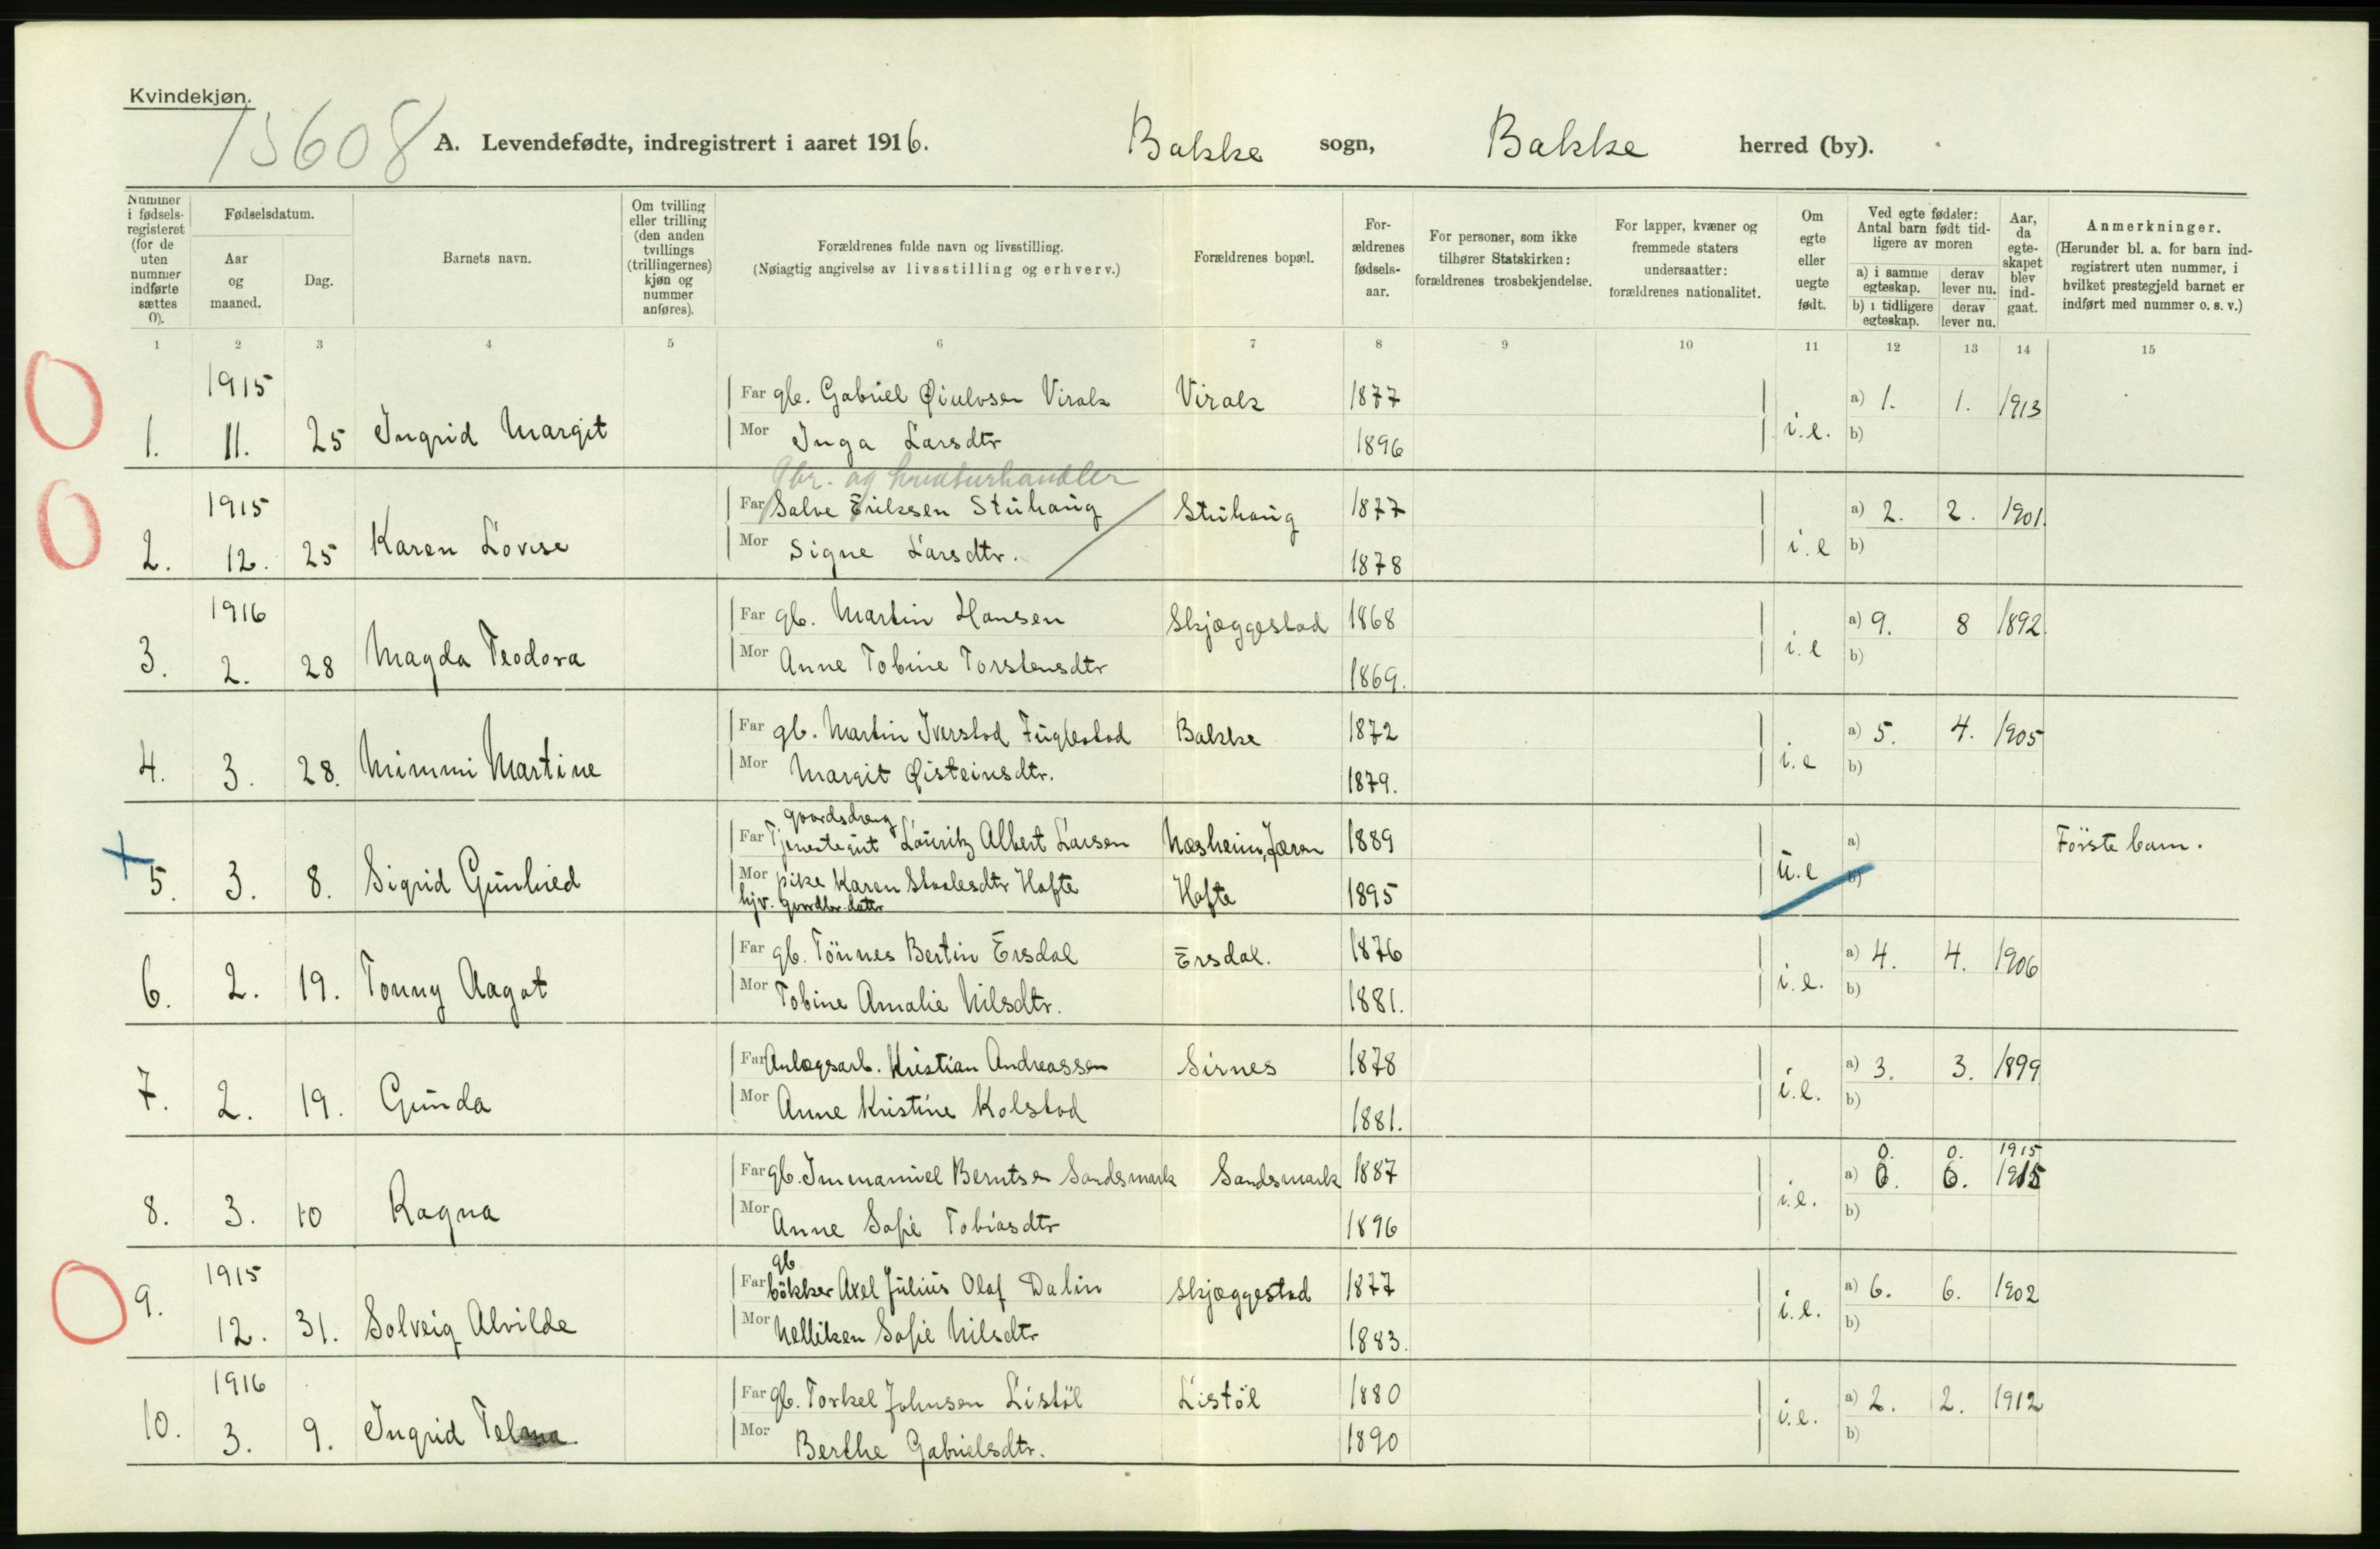 Kvindekjøn.
15608
A. Levendefødte, indregistrert i aaret 1916. Bakke sogn, Bakke herred (by).
Nummer i fødselsregisteret (for de uten nummer indførte sættes 0).
Fødselsdatum.
Aar og maaned.
Dag.
Barnets navn.
Om tvilling eller trilling (den anden tvillings (trillingernes) kjøn og nummer anføres).
Forældrenes fulde navn og livsstilling.
(Nøiagtig angivelse av livsstilling og erhverv.)
Forældrenes bopæl.
Forældrenes fødselsaar.
For personer, som ikke tilhører Statskirken: forældrenes trosbekjendelse.
For lapper, kvæner og fremmede staters undersaatter: forældrenes nationalitet.
Om egte eller uegte født.
Ved egte fødsler: Antal barn født tidligere av moren
a) i samme egteskap. derav lever nu.
b) i tidligere egteskap. derav lever nu.
Aar, da egteskapet blev indgaat.
Anmerkninger.
(Herunder bl. a. for barn indregistrert uten nummer, i hvilket prestegjeld barnet er indført med nummer o. s. v.)
1 2 3 4 5 6 7 8 9 10 11 12 13 14 15
1915
Far gb. Gabriel Øiulvsen Virak Virak 1877 a) 1. 1. 1913
1. 11. 25 Ingrid Margit Mor Inga Larsdtr 1896 i.e. b)
gbr. og kreaturhandler
1915 Far Salve Eriksen Stuhaug Stuhaug 1877 a) 2. 2. 1901.
2. 12. 25 Karen Lovise Mor Signe Larsdtr. 1878 i.e b)
1916 Far gb. Martin Hansen Skjæggestad 1868 a) 9. 8 1892.
3. 2. 28 Magda Teodora Mor Anne Tobine Torstensdtr 1869. i.e b)
Far gb. Martin Iverstad Fuglestad Bakke 1872 a) 5. 4. 1905
4. 3. 28. Mimmi Martine Mor Margit Øisteinsdtr. 1879. i.e b)
gaardsdreng
Far Tjenestegut Lauritz Albert Larsen Næsheim, Jæren 1889 a) Første barn.
5. 3. 8. Sigrid Gunhied Mor pike Karen Staalesdtr Hafte Hafte 1895 u.e b)
hjv. gaardbr. datter
Far gb. Tönnes Bertin Ersdal Ersdal. 1876 a) 4. 4. 1906
6. 2. 19. Tonny Aagot Mor Tobine Amalie Nilsdtr. 1881. i.e. b)
Far Anlægsarb. Kristian Andreassen Sirnes 1878 a) 3. 3. 1899
7. 2. 19. Gunda Mor Anne Kristine Kolstad 1881. i.e. b)
0. 0. 1915
Far gb. Immanuel Berntsen Sandsmark Sandsmark 1887 a) 0. 0. 1915
8. 3. 10 Ragna Mor Anne Sofie Tobiasdtr 1896 i.e. b)
gb
1915 Far bökker Axel Julius Olaf Dalin Skjæggestad 1877 a) 6. 6. 1902
9. 12. 31. Solveig Alvilde Mor Nelliken Sofie Nilsdtr 1883. i.e. b)
1916 Far gb. Torkel Johnsen Listöl Listöl 1880 a) 2. 2. 1912
10. 3. 9. Ingrid Telma Mor Berthe Gabrielsdtr. 1890 i.e. b)